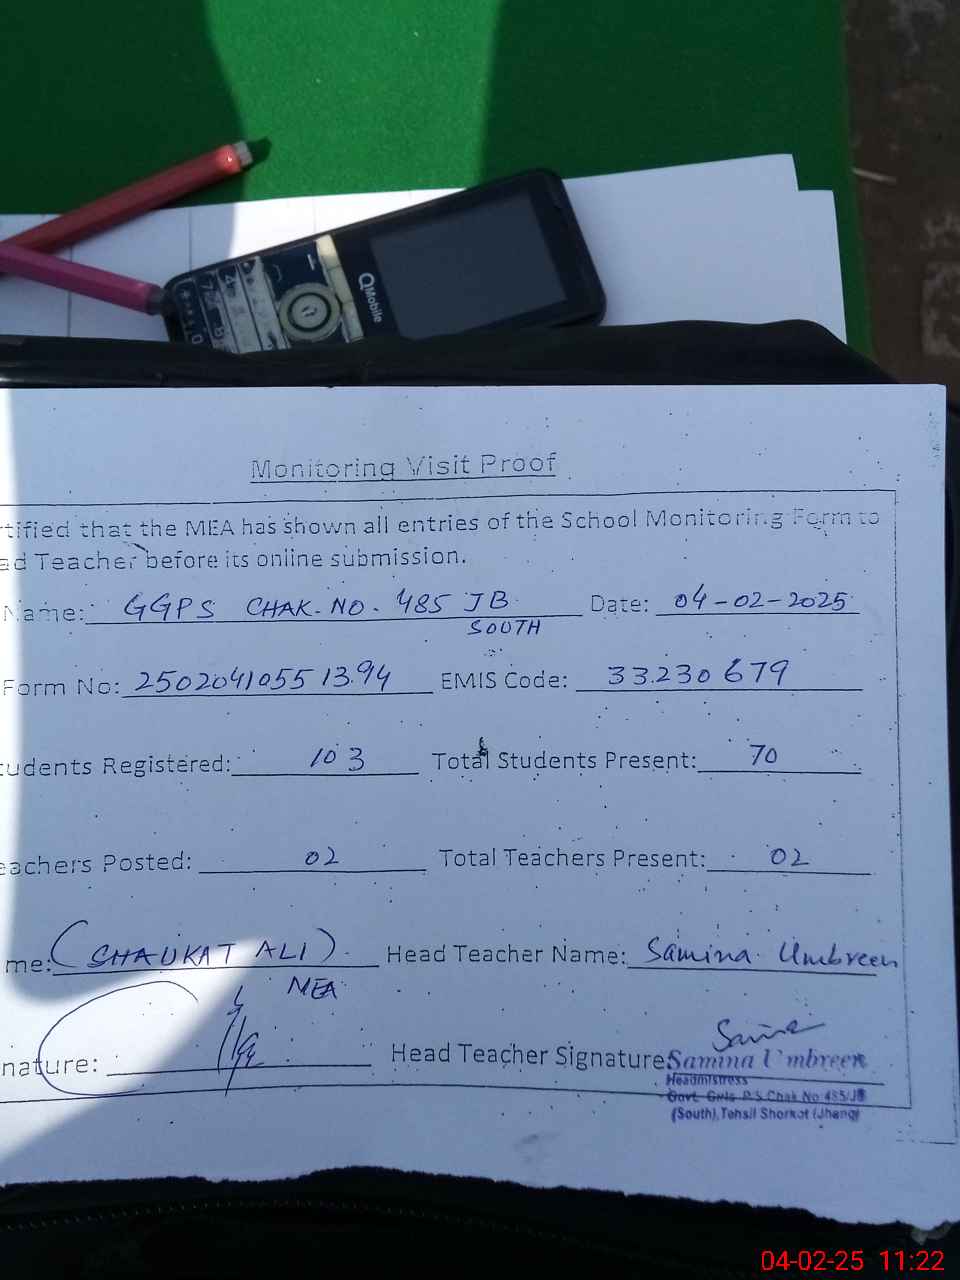 QMobile
Monitoring Visit Proof
rtified that the MEA has shown all entries of the School Monitoring Form to
ad Teacher before its online submission.
Name: GGPS CHAK. NO. 485 JB SOUTH Date: 04-02-2025
Form No: 250204105513.94 EMIS Code: 33230679
tudents Registered: 103 Total Students Present: 70
eachers Posted: 02 Total Teachers Present: 02
me: (SHAUKAT ALI) Head Teacher Name: Samina Umbreen
MEA
nature: Head Teacher Signature
Samina Umbreen
Headmistress
Govt. Girls P.S Chak No 485/JB
(South), Tehsil Shorkot (Jhang)
04-02-25 11:22